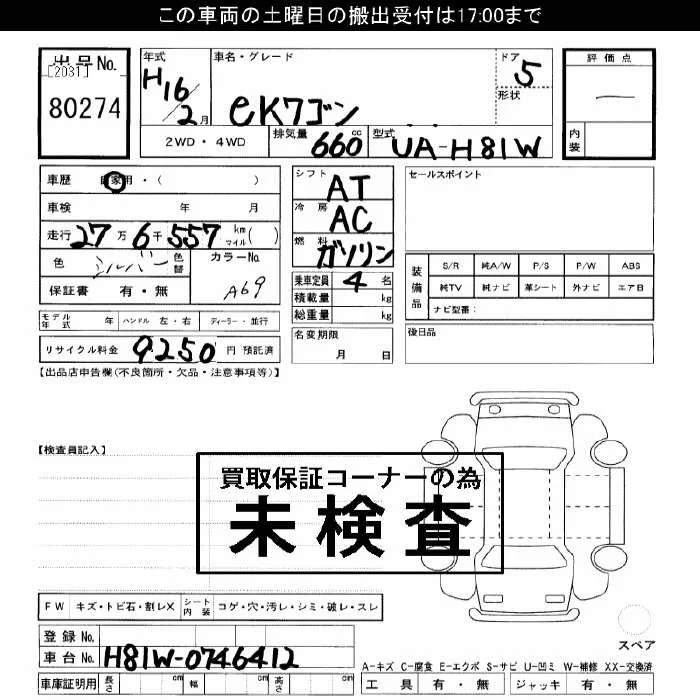 この車両の土曜日の搬出受付は17:00まで
出品No.
[2031]
80274
年式
H16/2月
車名・グレード
eKワゴン
ドア
5
形状
評価点
—
内装
2WD・4WD
排気量 660 cc
型式 UA-H81W
車歴 自家用・( )
車検 年 月
走行 27万6千557 km マイル( )
色 シルバー 色替
カラーNo. A69
保証書 有・無
シフト AT
冷房 AC
燃料 ガソリン
乗車定員 4 名
積載量 kg
総重量 kg
名変期限
月 日
セールスポイント
装備品
S/R 純A/W P/S P/W ABS
純TV 純ナビ 革シート 外ナビ エアB
ナビ型番:
後日品
モデル年式 年 ハンドル 左・右 ディーラー・並行
リサイクル料金 9250 円 預託済
【出品店申告欄(不良箇所・欠品・注意事項等)】
【検査員記入】
買取保証コーナーの為
未検査
FW キズ・トビ石・割レX シート内装 コゲ・穴・汚レ・シミ・破レ・スレ
スペア
登録No.
車台No. H81W-0746412
A-キズ C-腐食 E-エクボ S-サビ U-凹ミ W-補修 XX-交換済
車庫証明用 長さ cm 幅 cm 高さ cm
工具 有・無 ジャッキ 有・無